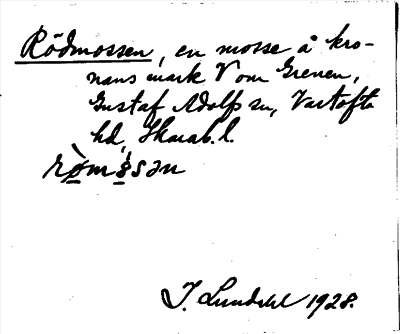 Rödmossen, en mosse å kro-
nans mark V om Grenen,
Gustaf Adolfs sn, Vartofta
hd, Skarab. l.
rò̤mo̤sən
J. Lundahl 1928.